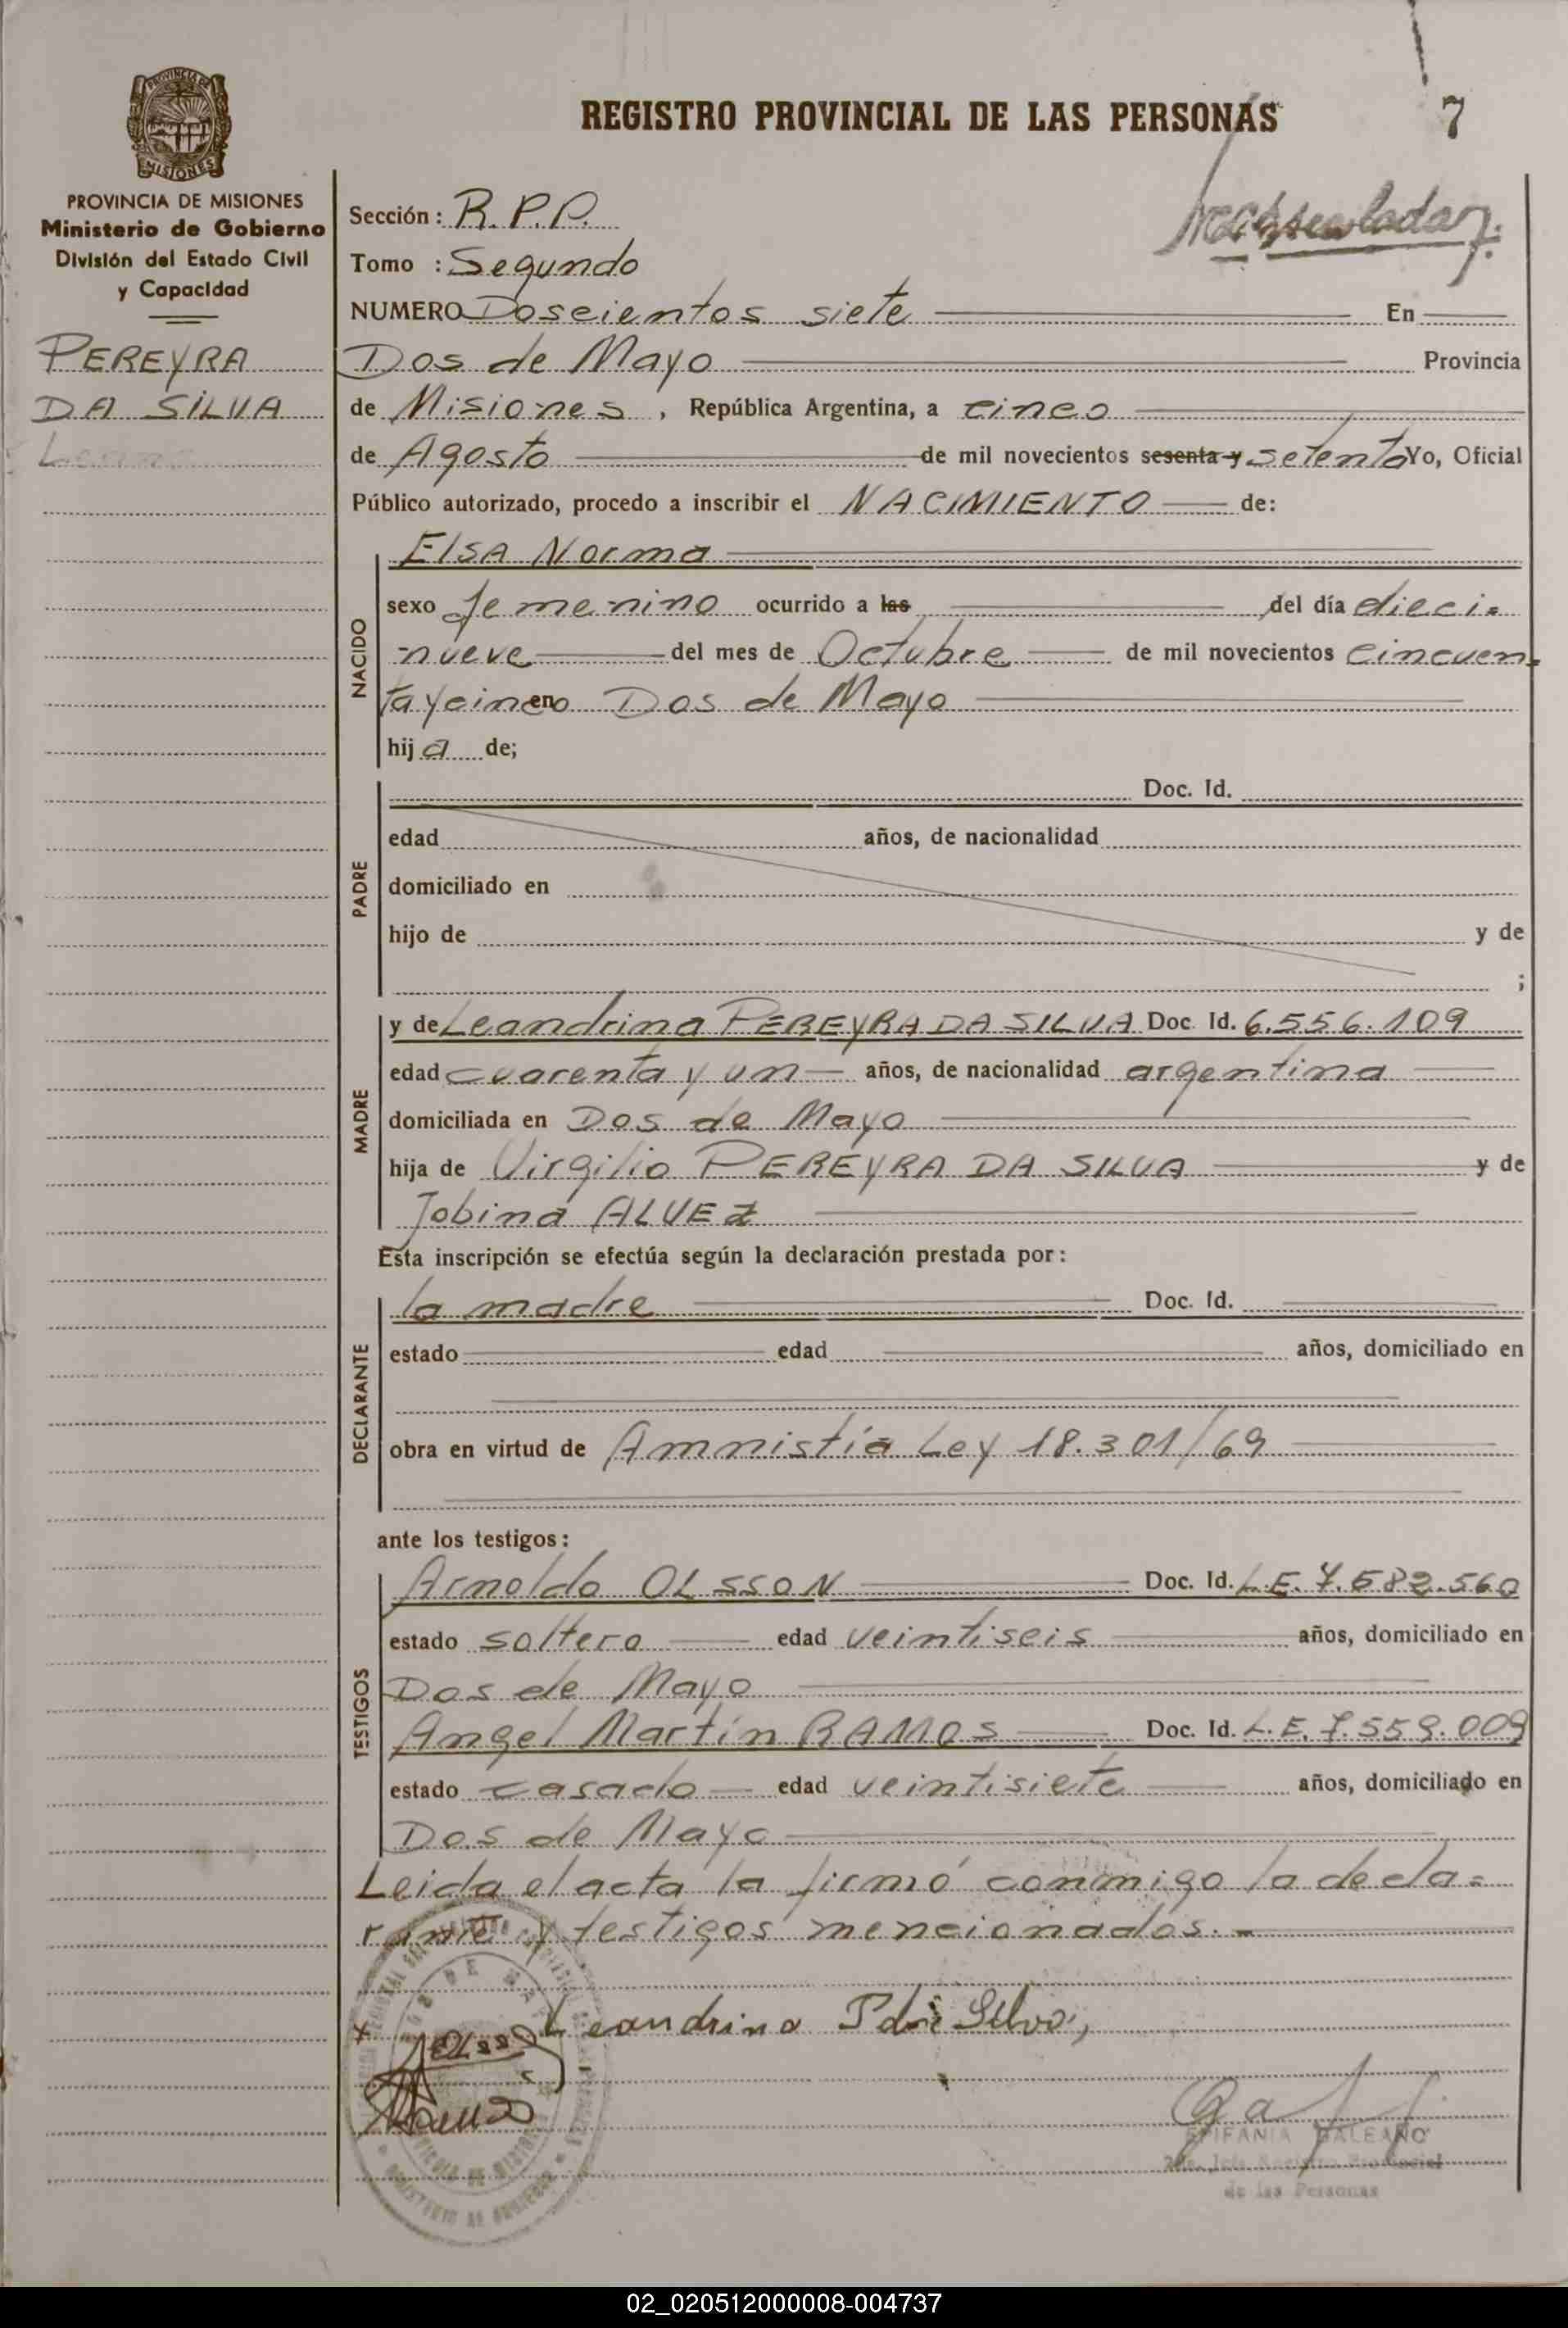 REGISTRO PROVINCIAL DE LAS PERSONAS
7
PROVINCIA DE MISIONES
Ministerio de Gobierno
División del Estado Civil
y Capacidad
PEREYRA
DA SILVA
Sección: R.P.P.
Tomo : Segundo
NUMERO Doscientos siete En
Dos de Mayo Provincia
de Misiones, República Argentina, a cinco
de Agosto de mil novecientos sesenta y setenta Yo, Oficial
Público autorizado, procedo a inscribir el NACIMIENTO de:
NACIDO
Elsa Norma
sexo femenino ocurrido a las del día dieci=
nueve del mes de Octubre de mil novecientos cincuen=
ta y cinco en Dos de Mayo
hija de;
PADRE
Doc. Id.
edad años, de nacionalidad
domiciliado en
hijo de y de
;
MADRE
y de Leandrina PEREYRA DA SILVA Doc. Id. 6.556.109
edad cuarenta y un años, de nacionalidad argentina
domiciliada en Dos de Mayo
hija de Virgilio PEREYRA DA SILVA y de
Jobina ALVEZ
Esta inscripción se efectúa según la declaración prestada por:
DECLARANTE
la madre Doc. Id.
estado edad años, domiciliado en
obra en virtud de Amnistía Ley 18.301/69
ante los testigos:
TESTIGOS
Arnoldo OLSSON Doc. Id. L.E. 7.582.560
estado soltero edad veintiseis años, domiciliado en
Dos de Mayo
Angel Martín RAMOS Doc. Id. L.E. 7.559.009
estado casado edad veintisiete años, domiciliado en
Dos de Mayo
Leida el acta la firmó conmigo la decla=
rante y testigos mencionados.-
Leandrina P da Silva
EPIFANIA GALEANO
de las Personas
02_020512000008-004737